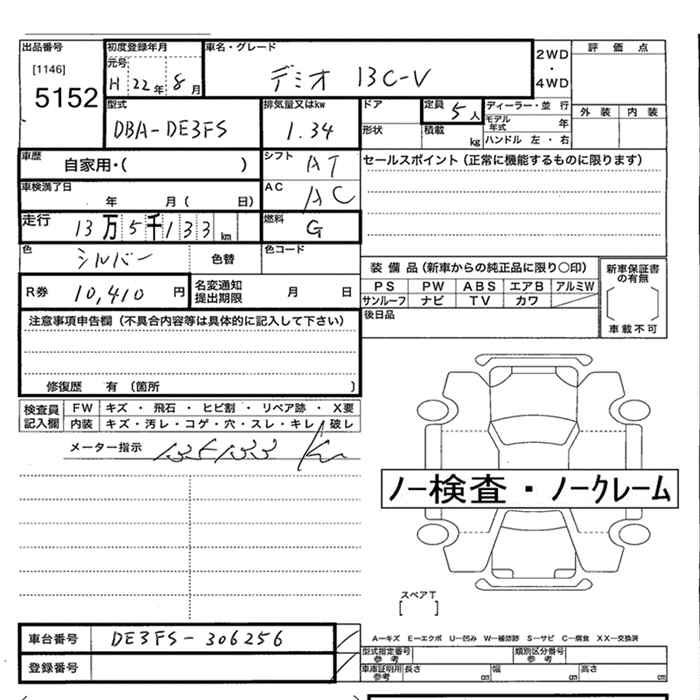 出品番号 初度登録年月 車名・グレード 2WD・4WD 評価点
[1146] 元号 H 22年 8月 デミオ 13C-V
5152
型式 排気量又はkw ドア 定員 5人 ディーラー・並行 外装 内装
DBA-DE3FS 1.34 形状 積載 kg モデル年式 年
ハンドル 左・右
車歴 自家用・( ) シフト AT セールスポイント(正常に機能するものに限ります)
車検満了日 年 月( 日) AC AC
走行 13万5千133km 燃料 G
色 シルバー 色替 色コード
装備品(新車からの純正品に限り○印) 新車保証書の有無
R券 10,410円 名変通知提出期限 月 日 PS PW ABS エアB アルミW
サンルーフ ナビ TV カワ
注意事項申告欄(不具合内容等は具体的に記入して下さい) 後日品 車載不可
修復歴 有(箇所 )
検査員記入欄 FW キズ・飛石・ヒビ割・リペア跡・X要
内装 キズ・汚レ・コゲ・穴・スレ・キレ・破レ
メーター指示 135133 Km
ノー検査・ノークレーム
スペアT
[ ]
車台番号 DE3FS-306256 A-キズ E-エクボ U-凹み W-補修跡 S-サビ C-腐食 XX-交換済
型式指定番号 参考 類別区分番号 参考
登録番号 車庫証明用 参考 長さ cm 幅 cm 高さ cm